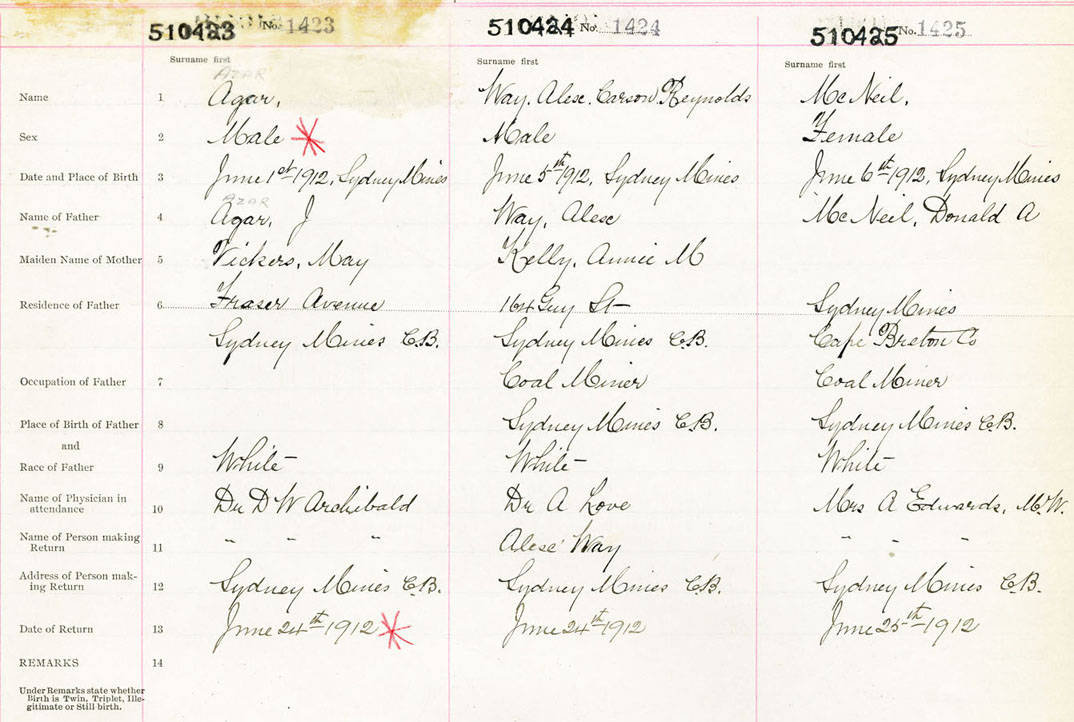 510423 No. 1423 510424 No. 1424 510425 No. 1425
Surname first Surname first Surname first
AZAR
Name 1 Agar, Way. Alex. Carson Reynolds McNeil,
Sex 2 Male Male Female
Date and Place of Birth 3 June 1st 1912, Sydney Mines June 5th 1912, Sydney Mines June 6th 1912, Sydney Mines
AZAR
Name of Father 4 Agar, J Way, Alex McNeil, Donald A
Maiden Name of Mother 5 Vickers, May Kelly, Annie M
Residence of Father 6 Fraser Avenue 164 Guy St Sydney Mines
Sydney Mines C.B. Sydney Mines C.B. Cape Breton Co
Occupation of Father 7 Coal Miner Coal Miner
Place of Birth of Father 8 Sydney Mines C.B. Sydney Mines C.B.
and
Race of Father 9 White White White
Name of Physician in attendance 10 Dr D W Archibald Dr A Love Mrs A Edwards, M.W.
Name of Person making Return 11 " " " Alex Way " " "
Address of Person mak-ing Return 12 Sydney Mines C.B. Sydney Mines C.B. Sydney Mines C.B.
Date of Return 13 June 24th 1912 June 24th 1912 June 25th 1912
REMARKS 14
Under Remarks state whether
Birth is Twin, Triplet, Ille-
gitimate or Still birth.